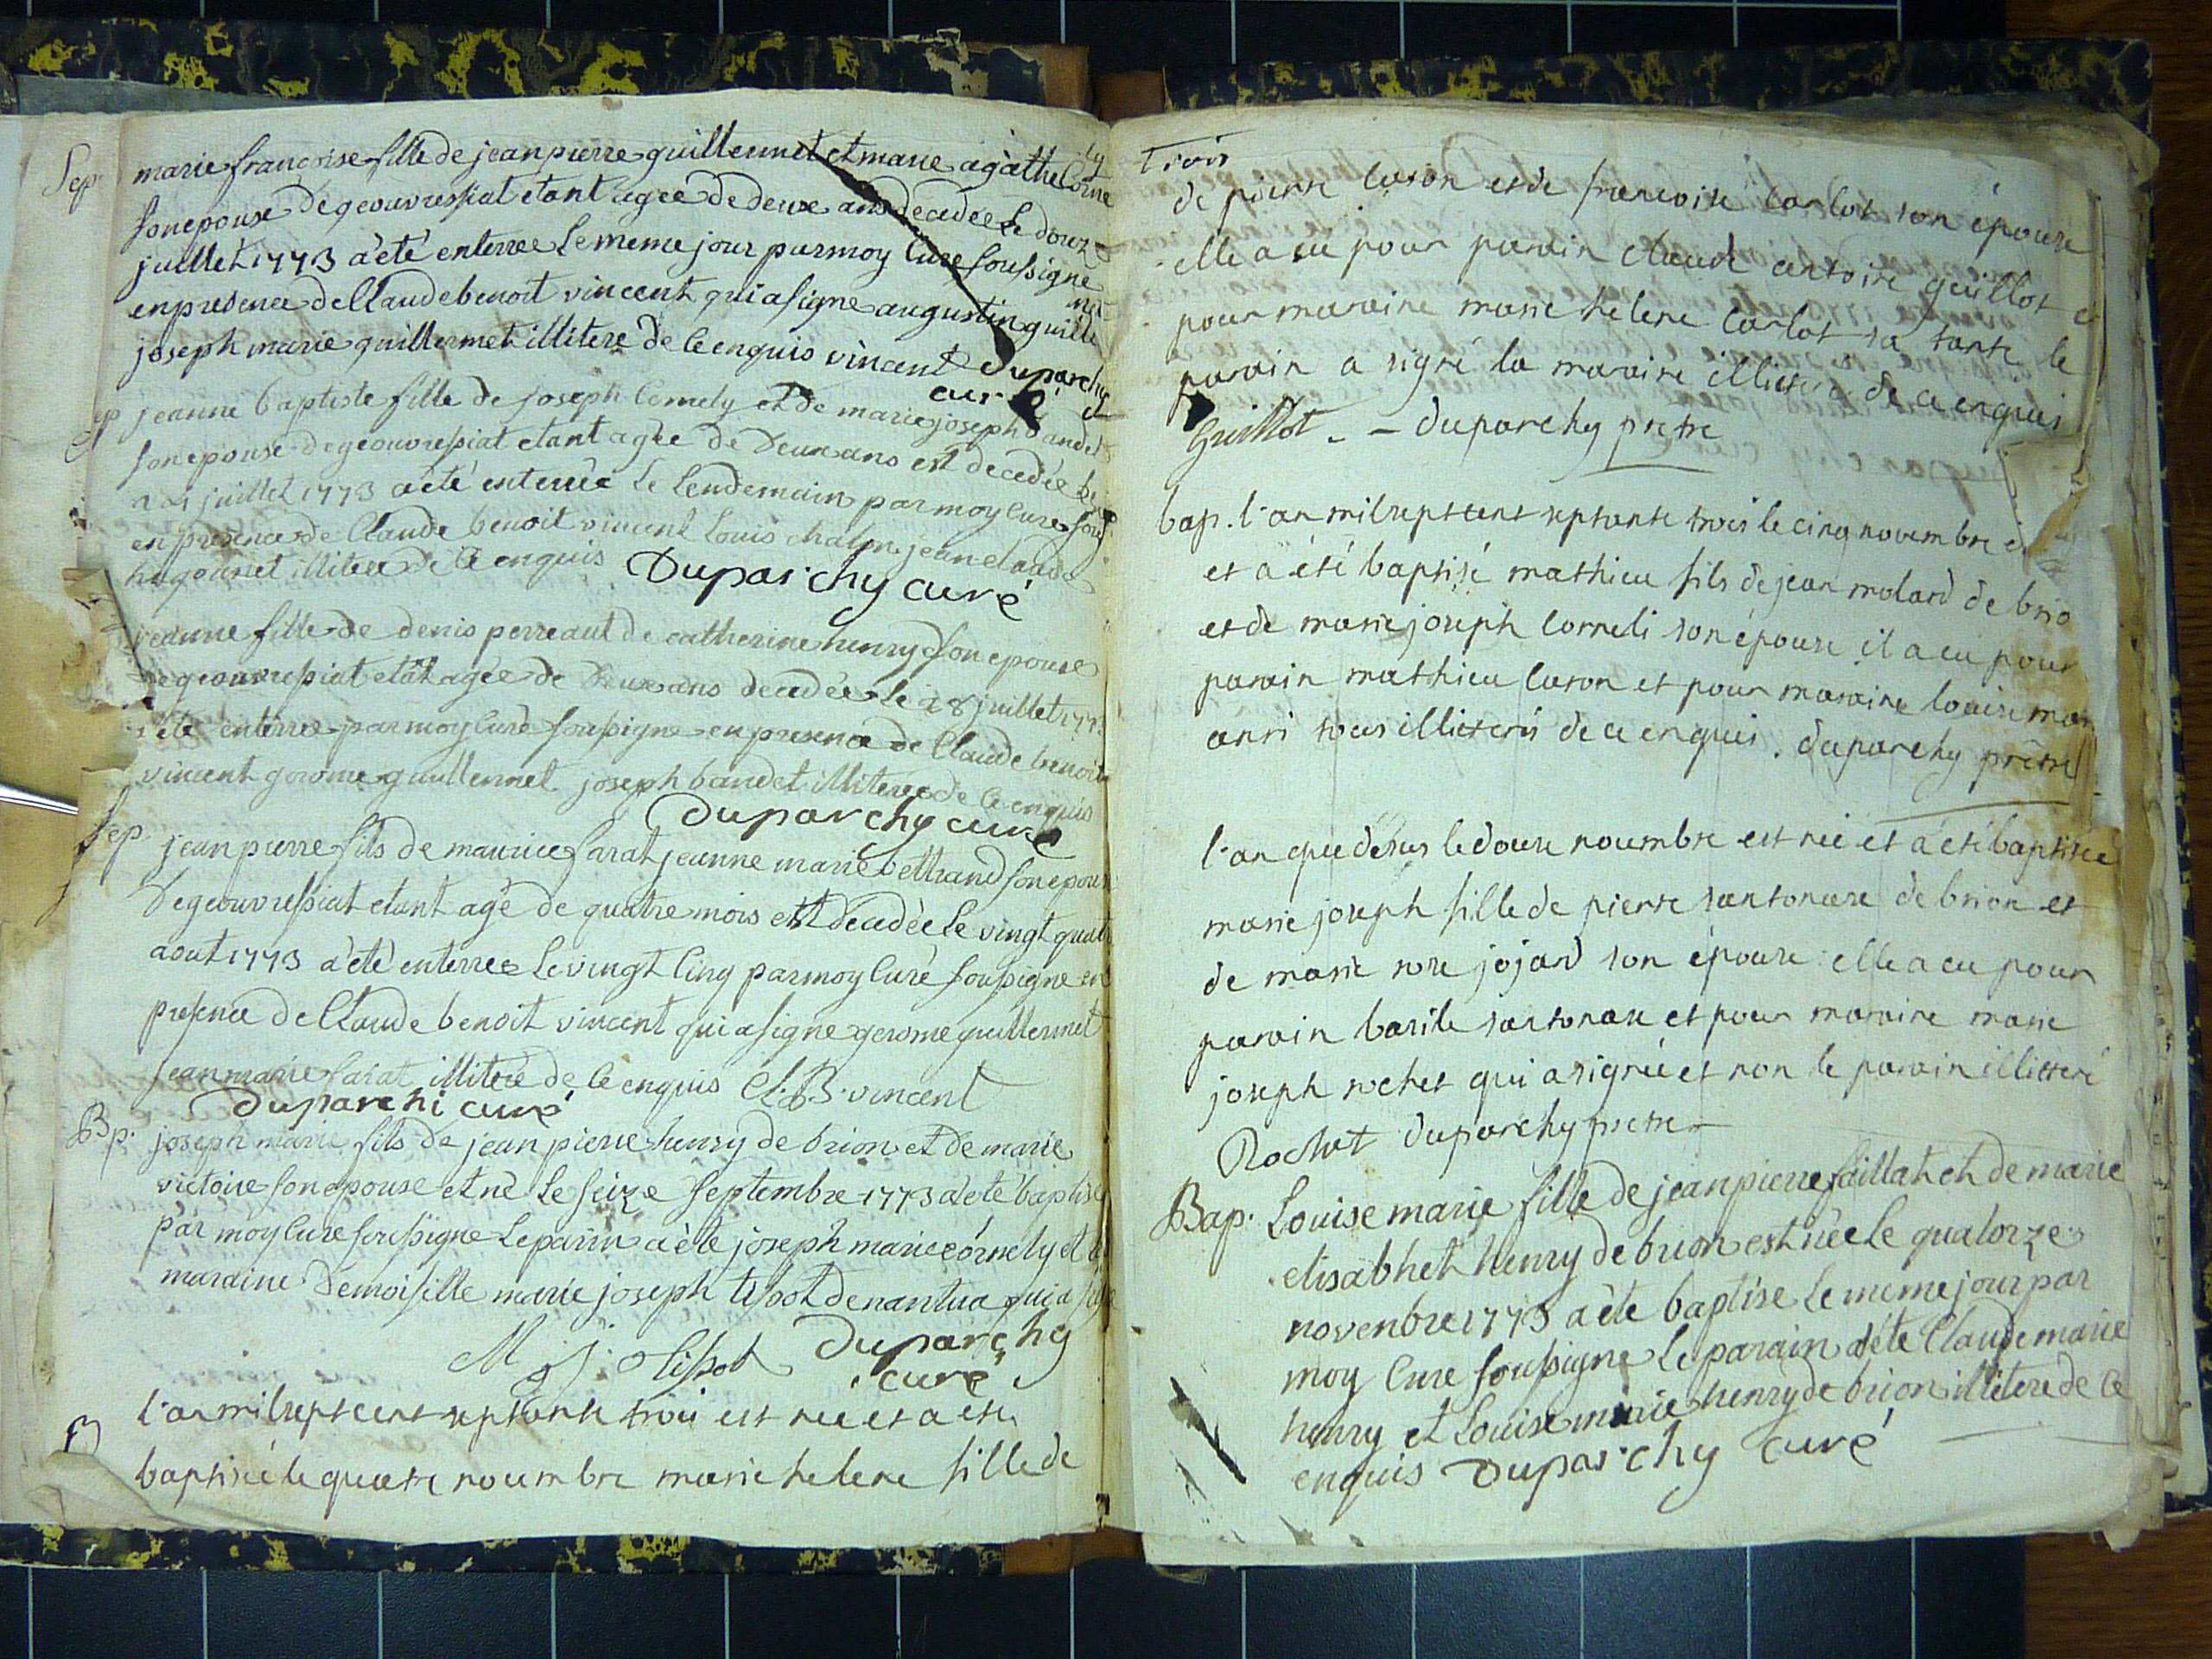 Sep. marie françoise fille de jean pierre guillermet et marie agathe Corne
ly
son epouse de geouvressiat etant agée de deux ans decedée Le douze
juillet 1773 a èté enterree Le meme jour par moy Curé soussigné
en presence de Claude benoit vincent qui a signe augustin guille
met
joseph marie guillermet illitere de Ce enquis vincent Duparchy
curé
Sep jeanne baptiste fille de joseph Cornely et de marie joseph bandet
son epouse de geouvressiat etant agée de Deux ans est decedée le
juillet 1773 a èté enterrée Le Lendemain par moy Curé sous
en presence de Claude benoit vincent Louis chalon jean claude
hugonnet illiteré de Ce enquis Duparchy curé
jeanne fille de denis perreaut de catherine henry son epouse
de geouvressiat etat agée de Deux ans decedée Le 28 juillet 1773
a èté enterree par moy Curé soussigne en presence de Claude benoit
vincent gerome guillermet joseph bandet illiteré de Ce enquis
Duparchy curé
Sep. jean pierre fils de maurice sarat jeanne marie bettrand son epouse
De geouvressiat etant agé de quatre mois est decedèe Le vingt quatre
aout 1773 a èté enterree Le vingt Cinq par moy Curé soussigne en
presence de Claude benoit vincent qui a signe gerome guillermet
jean marie sarat illiteré de Ce enquis Cl. B. vincent
Duparchi curé
Bp. joseph marie fils de jean pierre henry de brion et de marie
victoire son epouse et né Le seize septembre 1773 a èté baptisé
par moy Cure soussigne Le parin a èté joseph marie cornely et la
maraine Demoiselle marie joseph tissot de nantua qui a signé
M. j. Tissot Duparchy
curé
B l'an mil sept cent septante trois est née et a été
baptisée le quatre novembre marie helene fille de
Trois
de pierre Curon et de francoise Carlot son épouse
elle a eu pour parain claude antoine guillot et
pour maraine marie helene Carlot sa tante le
parain a signé la maraine illiteré de ce enquis
Guillot - - duparchy pretre
bap. l'an mil sept cent septante trois le cinq novembre est
et a été baptisé mathieu fils de jean molard de brio
et de marie joseph Corneli son épouse il a eu pour
parain mathieu Curon et pour maraine louise mar
ansi tous illitterés de ce enquis. duparchy prêtre
l'an que désus le douse novembre est née et a été baptisée
marie joseph fille de pierre santonare de brion et
de marie rose jojard son épouse elle a eu pour
parain basile santonare et pour maraine marie
joseph rochet qui a signée et non le parain illitteré
Rochet duparchy pretre
Bap. Louise marie fille de jean pierre saillat et de marie
elisabhet henry de brion est née Le quatorze
novenbre 1773 a ète baptise Le meme jour par
moy Cure soussigne Le parain a été Claude marie
henry et Louise marie henry de brion illitere de Ce
enquis Duparchy curé